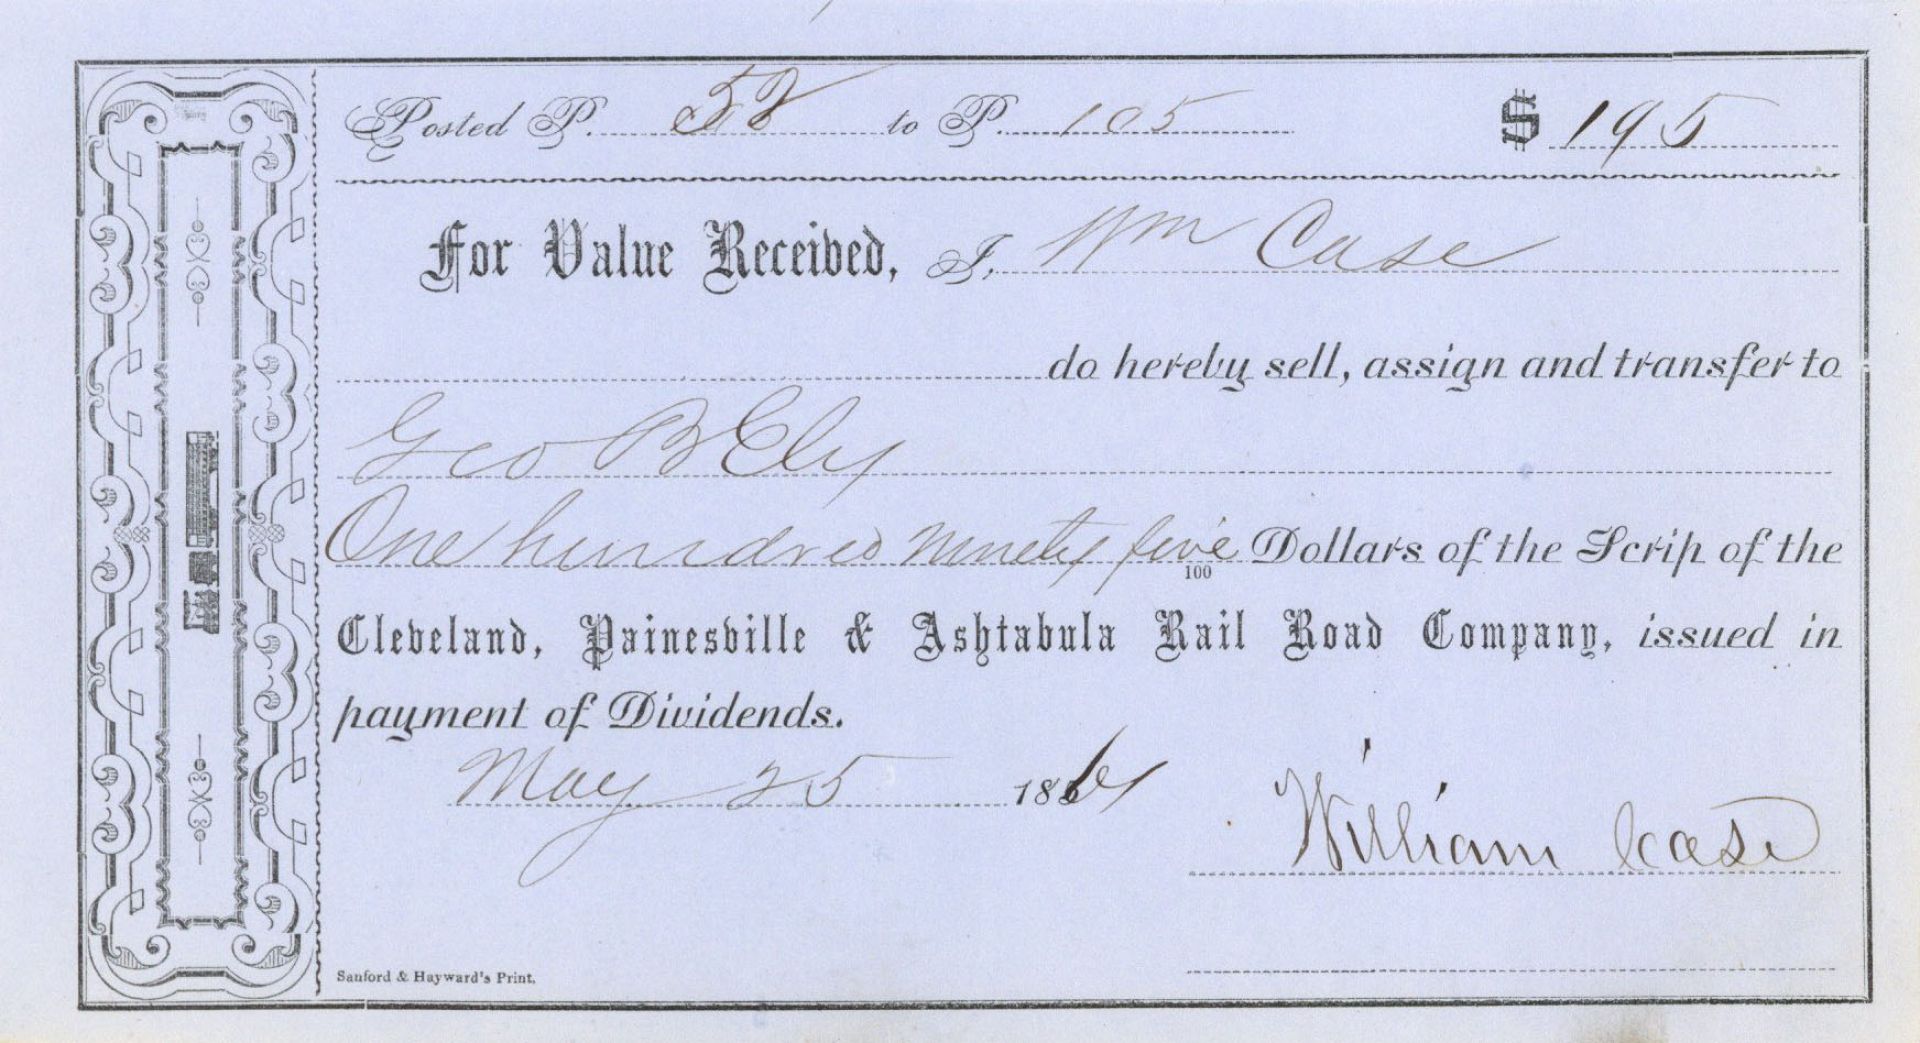 Posted P. 52 to P. 105 $ 195
For Value Received, I, Wm Case
do hereby sell, assign and transfer to
Geo B Ely
One hundred ninety five 100 Dollars of the Scrip of the
Cleveland, Painesville & Ashtabula Rail Road Company, issued in
payment of Dividends.
May 25 1861
William Case
Sanford & Hayward's Print.